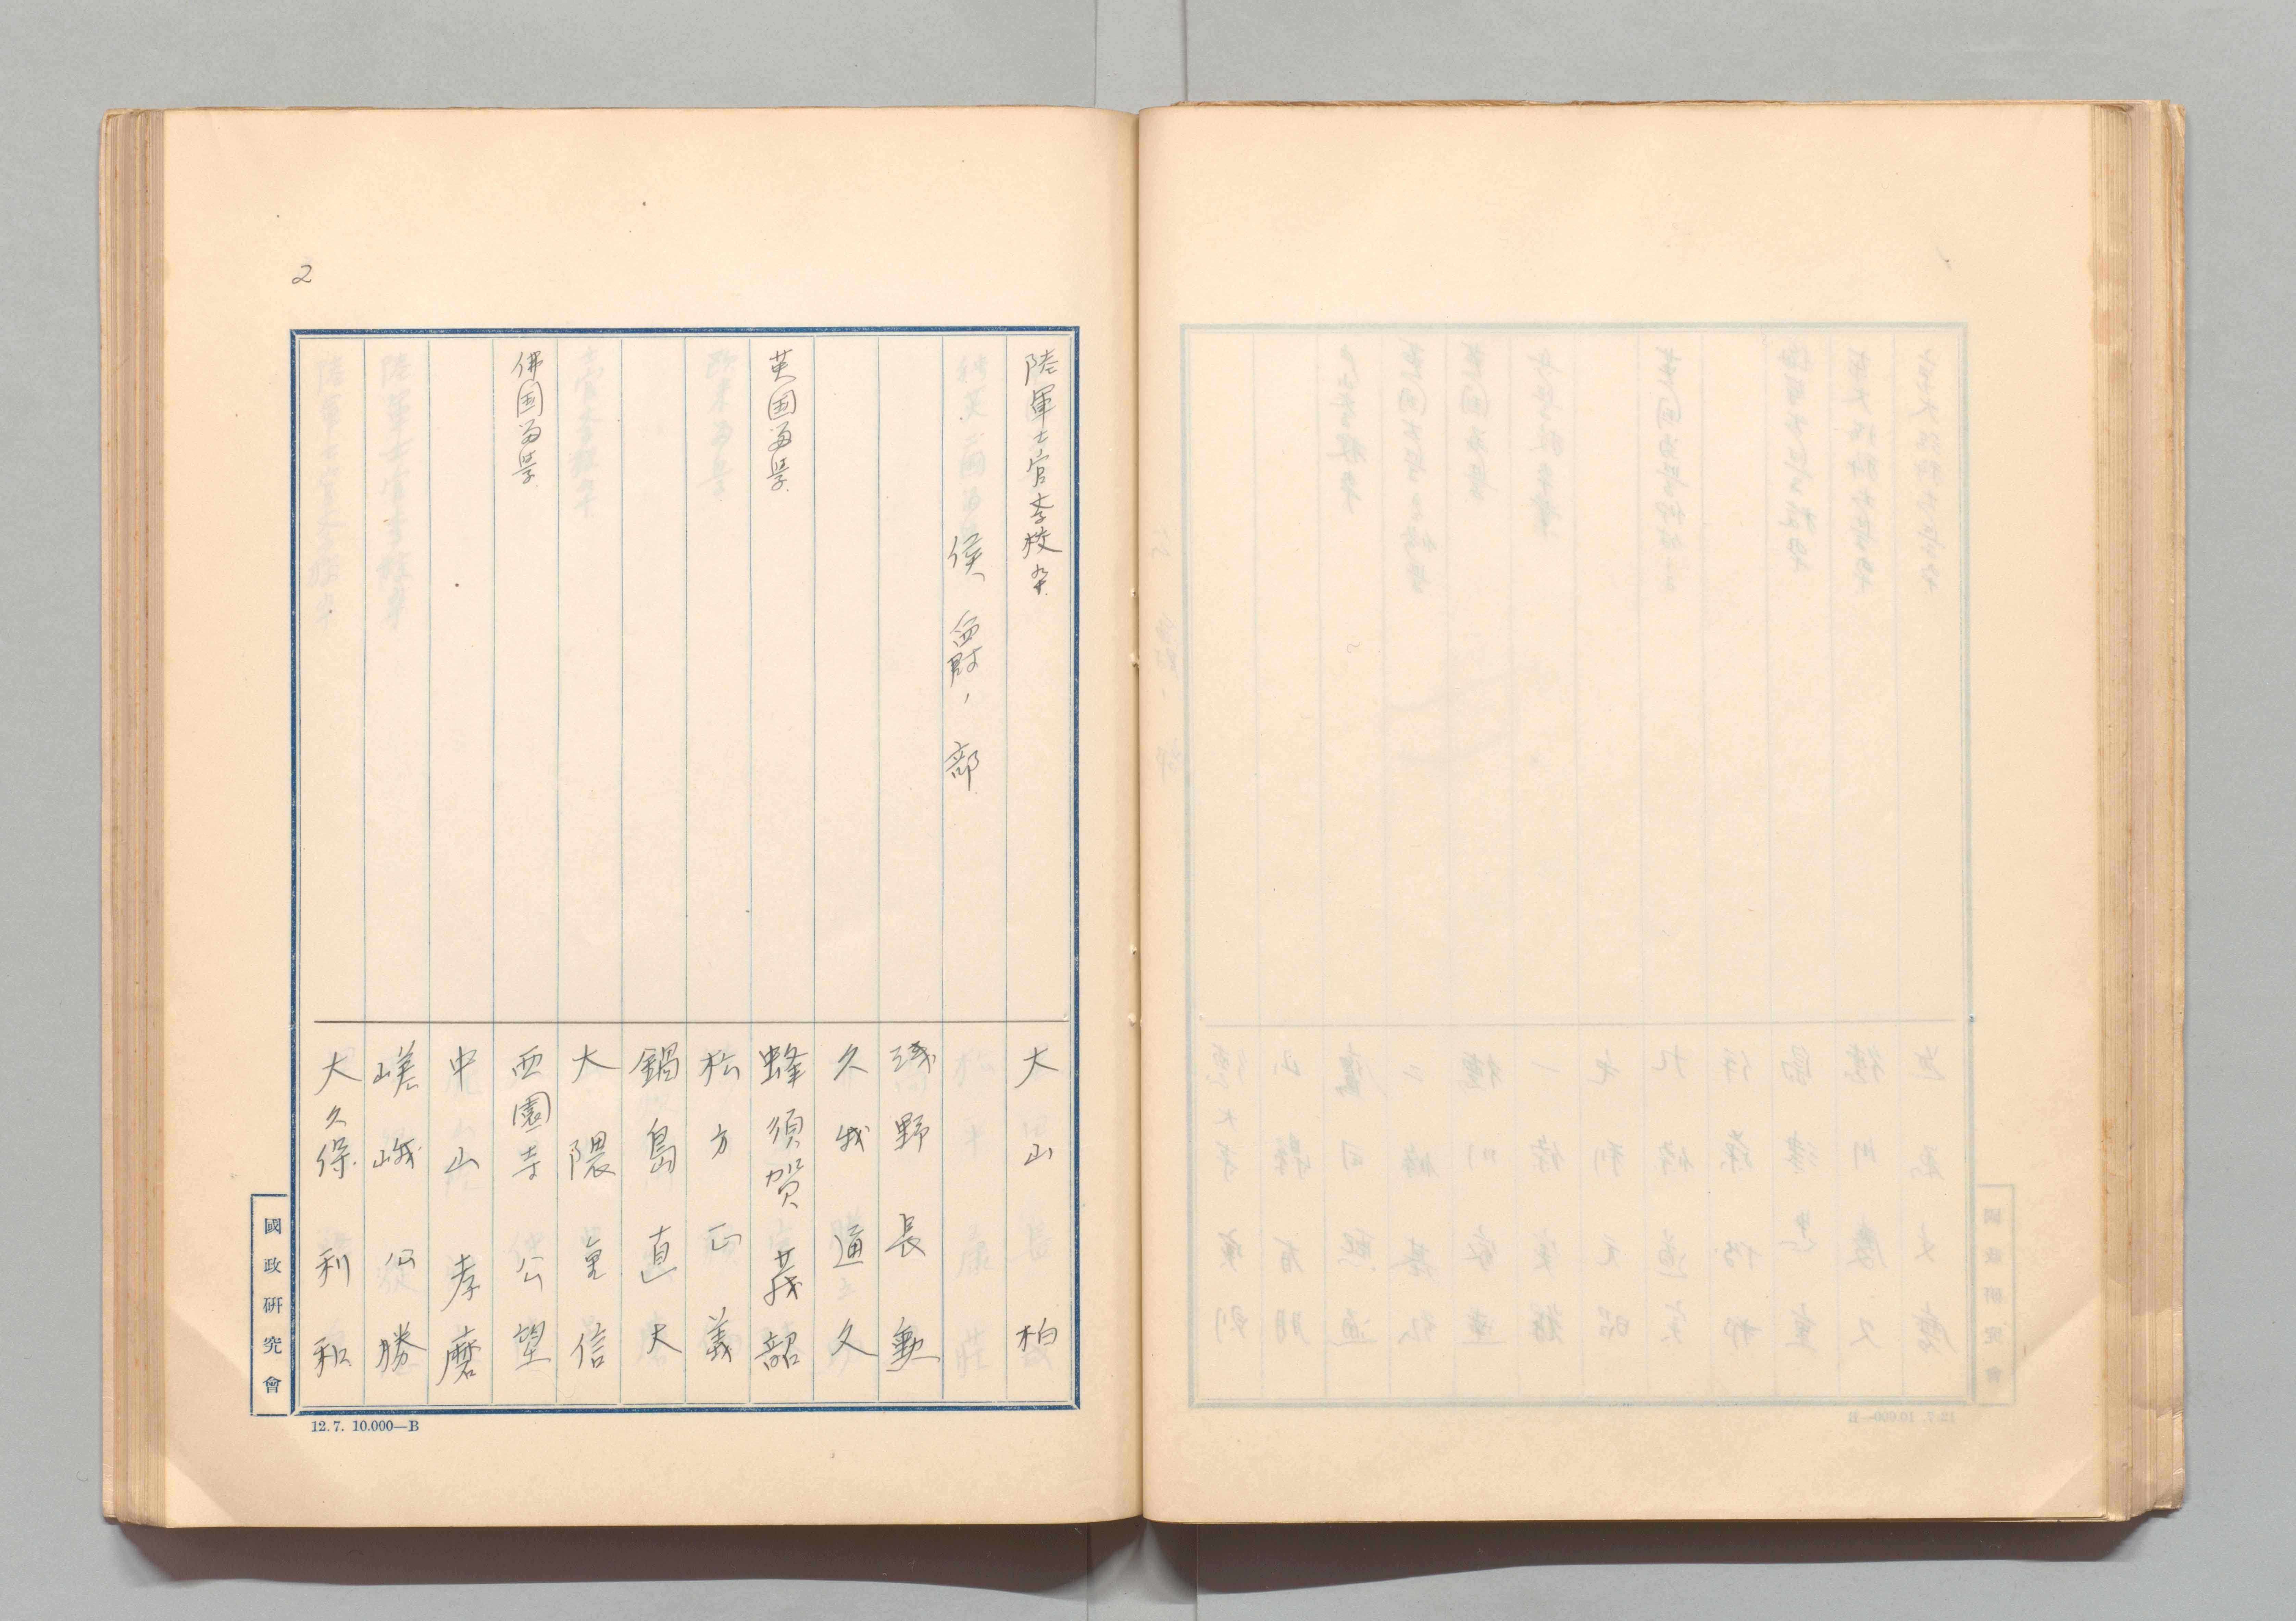 2
陸軍士官学校卆 大山柏
侯爵ノ部
浅野長勲
久我通久
英国留学 蜂須賀茂韶
松方正義
鍋島直大
大隈重信
佛国留学 西園寺公望
中山孝麿
嵯峨公勝
大久保利和
國政研究會
12.7. 10.000—B